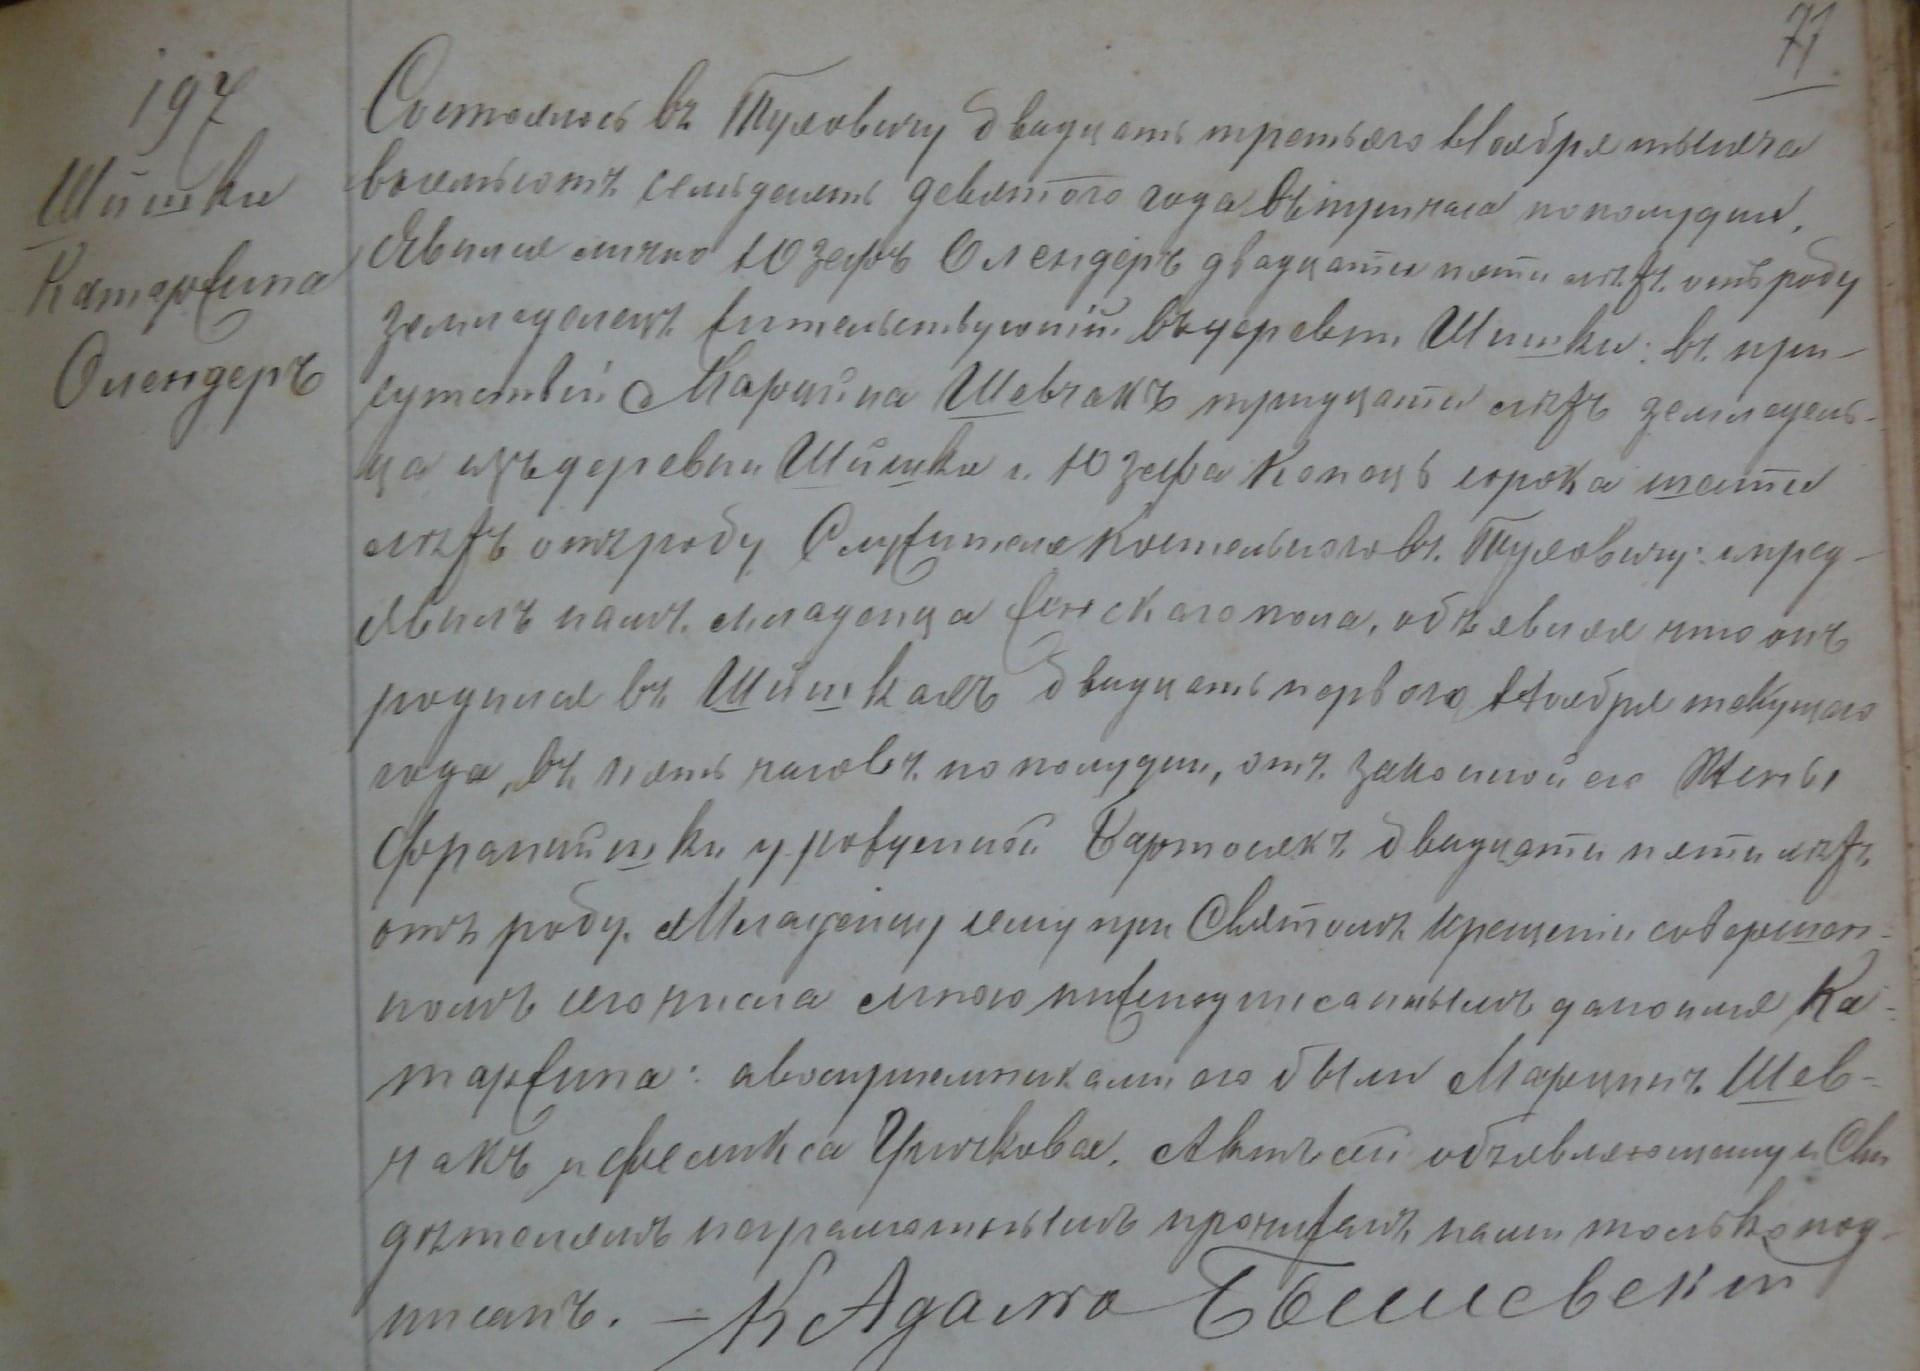 71
197
Шишки
Катаржина
Олендеръ
Состоялось въ Туховичу двадцать третьяго Ноября тысяча
восемьсотъ семьдесятъ девятого года въ три часа пополудни,
Явился лично Юзефъ Олендеръ двадцати пяти лѣтъ отъ роду
земледелецъ жительствующій въ деревни Шишки: въ при-
сутствіи Марцина Шевчакъ тридцати лѣтъ земледель-
ца изъ деревни Шишки и Юзефа Копець сорока шести
лѣтъ отъ роду Служителя Костельного въ Туховичу: и пред-
явилъ намъ младенца женскаго пола, объявляя что онъ
родился въ Шишкахъ двадцать первого Ноября текущаго
года, въ пять часовъ пополудни, отъ законной его Жены
Францишки урожденной Бартосякъ двадцати пяти лѣтъ
отъ роду. Младенцу сему при Святомъ Крещеніи совершон-
номъ сего числа мною нижеподписаннымъ дано имя Ка-
таржина: а воспріемниками его были Марцинъ Шев-
чакъ и Феликса Чижкова. Актъ сей объявляющему и Сви
дѣтелямъ неграмотнымъ прочитанъ нами только под-
писанъ. — К Адамъ